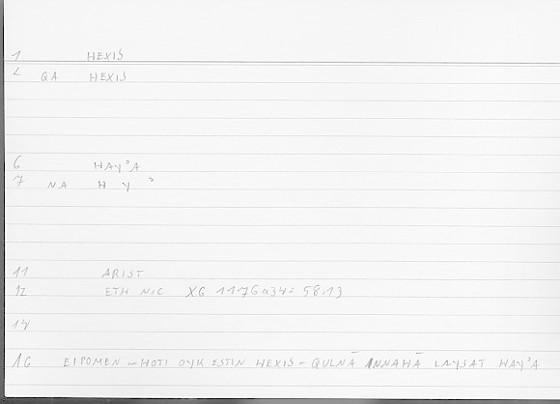 1 HEXIS
2 QA HEXIS
6 HAY'A
7 NA H Y '
11 ARIST
12 ETH NIC X6 1176a34: 58.13
14
16 EIPOMEN – HOTI OYK ESTIN HEXIS – QULNĀ ANNAHĀ LAYSAT HAY'A